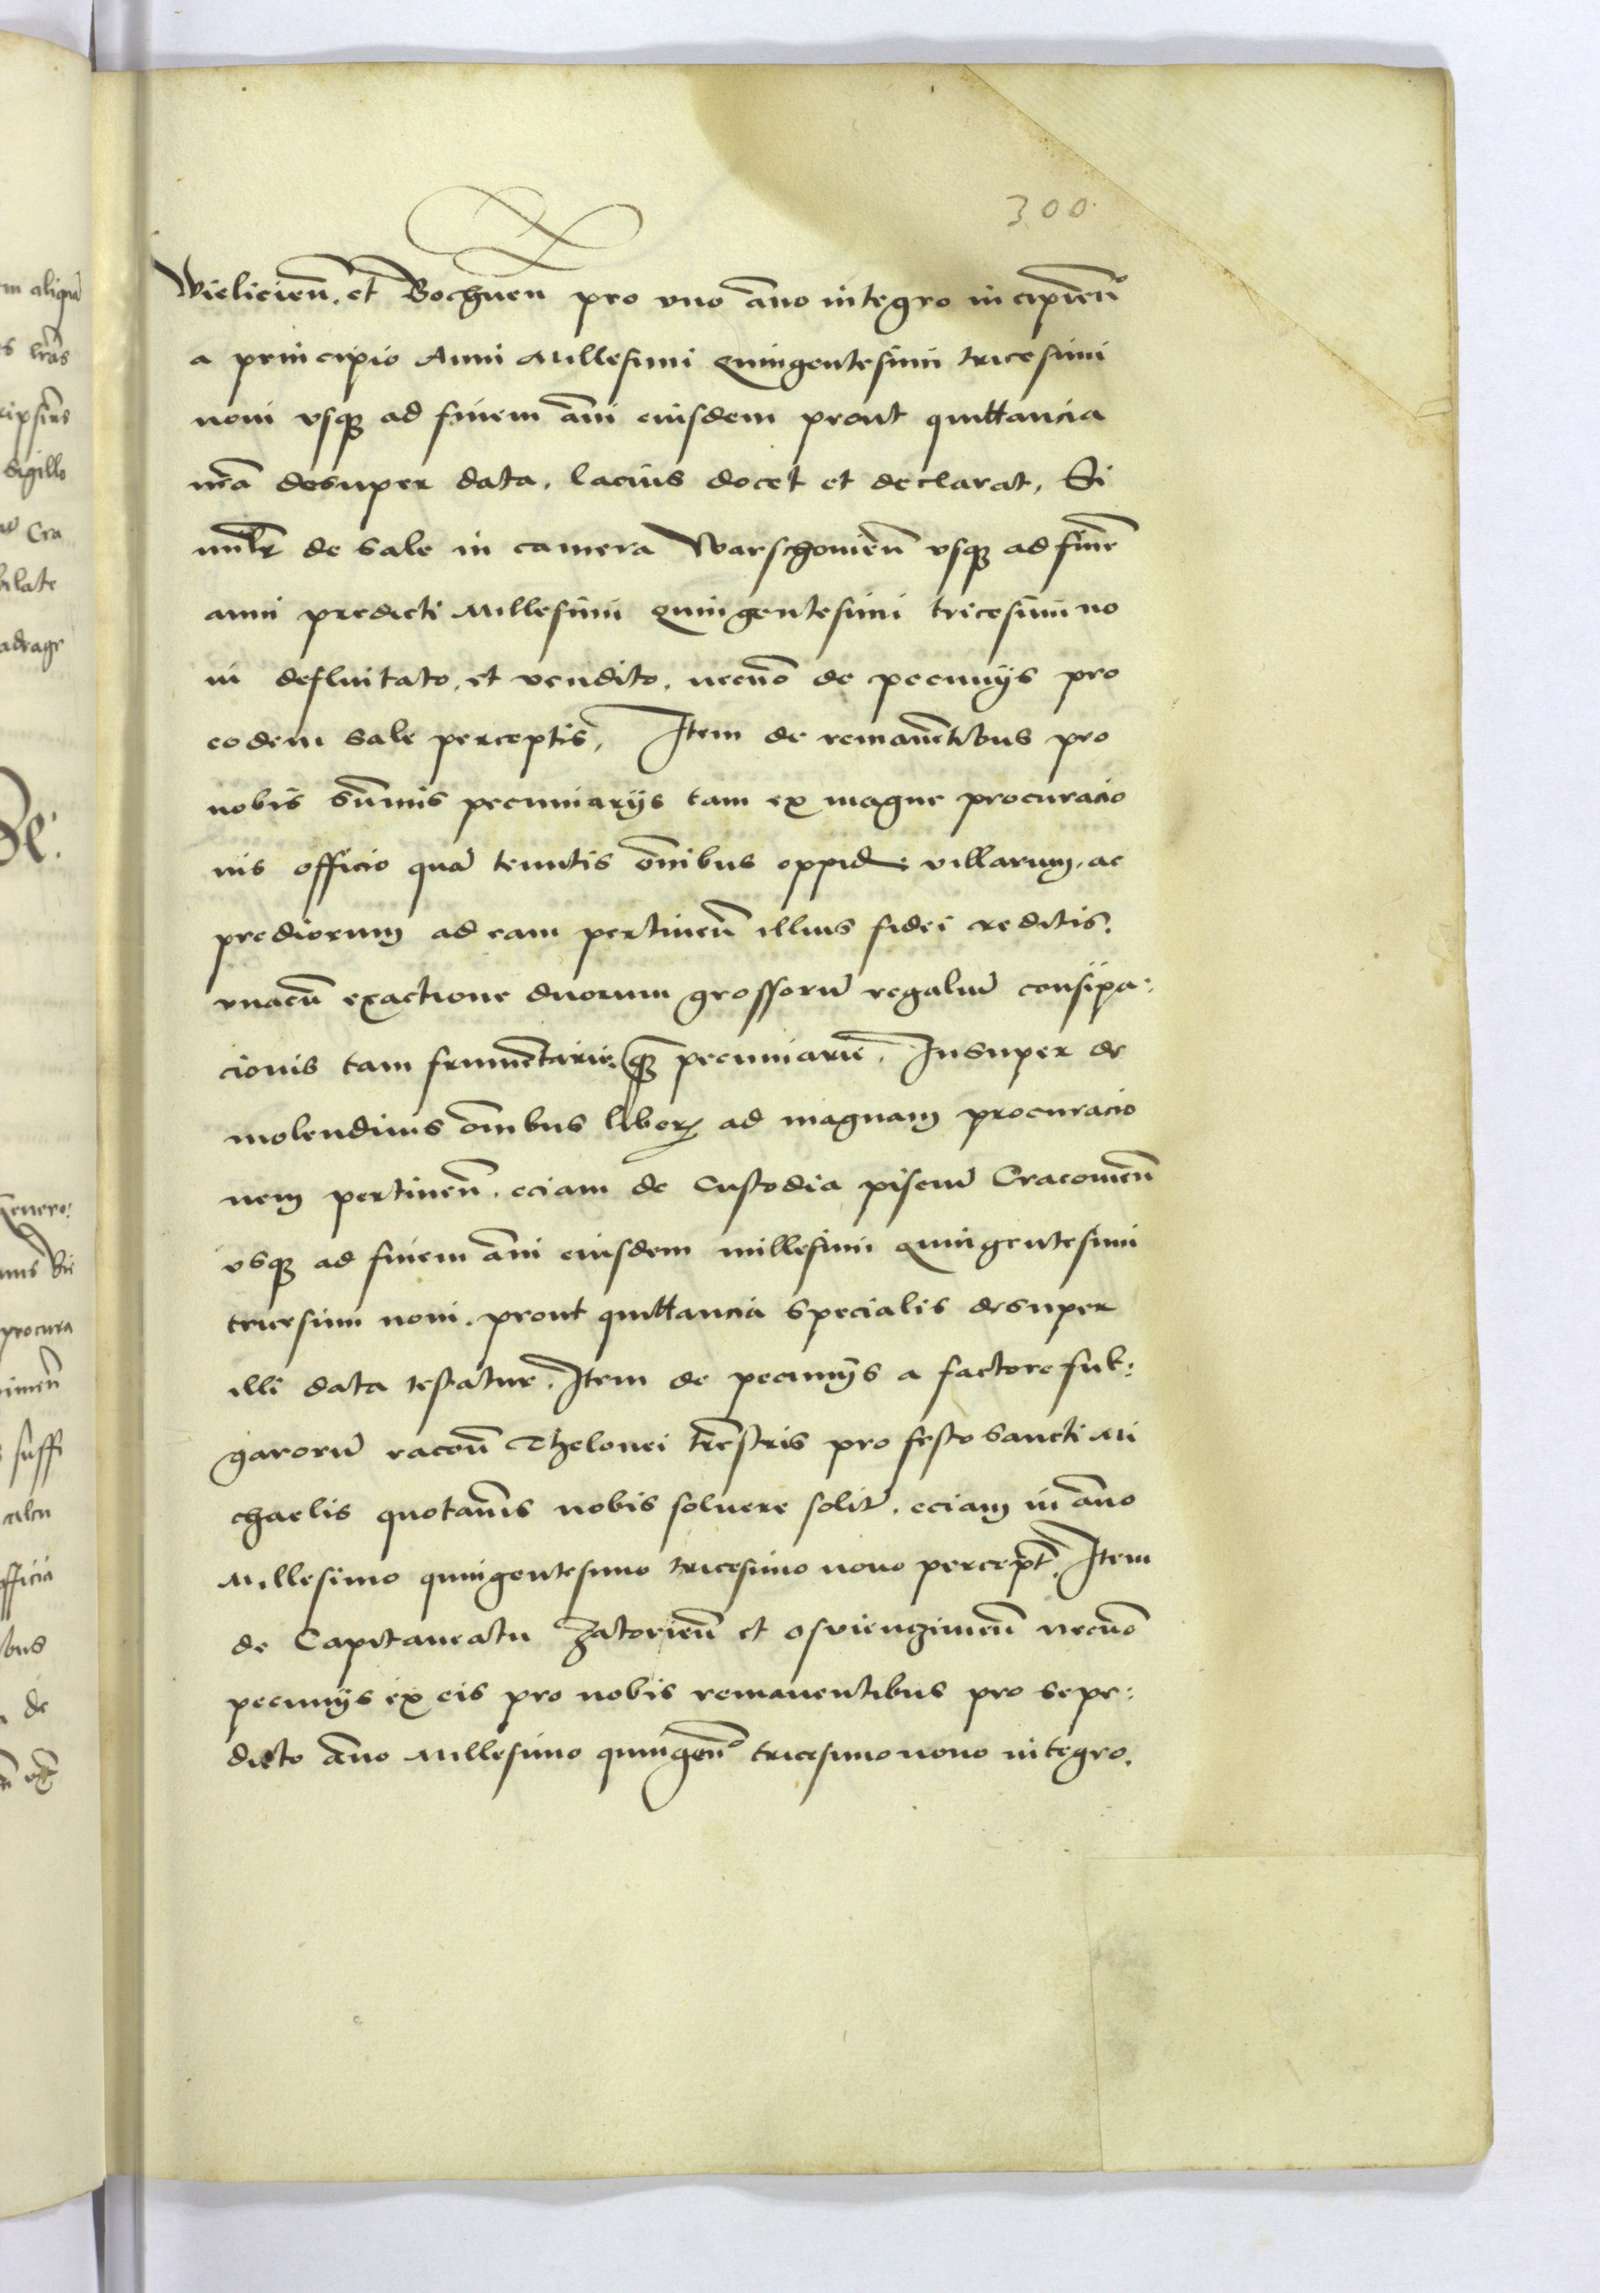 300
Vielicien̄. et Bochnen pro vno año integro incipien̄
a principio Anni Millesimi quingentesimi tricesimi
noni vsq̨ ad finem añi eiusdem prout quittancia
nr̄a desuper data. lacius docet et declarat, Si
mil̄r de sale in camera Warschouien̄ vsq̨ ad finē
anni predicti Millesimi quingentesimi tricesimi no
ni defluitato. et vendito. necnō de pecunijs pro
eodem sale perceptis, Item de remanētibus pro
nobis sūmis pecuniarijs tam ex magne procuracio
nis officio quā tenutis ōnibus oppidoꝝ villarum. ac
prediorum ad eam pertinen̄ illius fidei creditis.
vnacū exactione duorum grossorū regaliū consipa:
cionis tam frumētarie. qȝ pecuniarie. Insuper de
molendinis ōnibus liberꝭ ad magnam procuracio
nem pertinen̄. eciam de Custodia pisciū Cracouien̄
vsq̨ ad finem añi eiusdem millesimi quingentesimi
tricesimi noni. prout quittancia specialis desuper
illi data testatur. Item de pecunijs a factore ful:
garorū racōn̄ Thelonei tr̄estris pro festo Sancti Mi
chaelis quotannis nobis soluere solitꝭ. eciam in año
Millesimo quingentesimo tricesimo nono percept̄. Item
de Capitaneatu Zatorien̄ et Osviencimen̄ necnō
pecunijs ex eis pro nobis remanentibus pro sepe:
dicto año Millesimo quingen̄º tricesimo nono integro.